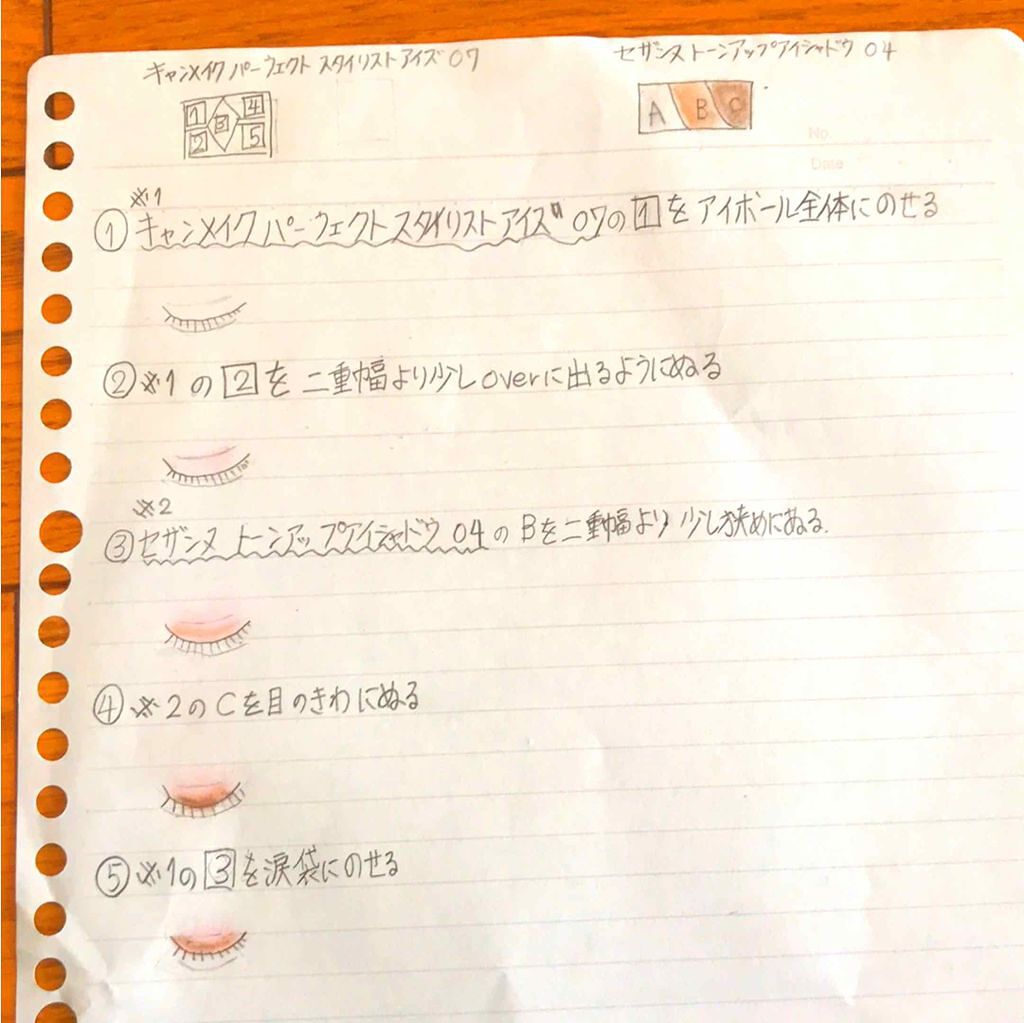 キャンメイク パーフェクト スタイリストアイズ 07
セザンヌ トーンアップアイシャドウ 04
1 4
3
2 5
A B C
No.
Date
※1
① キャンメイク パーフェクトスタイリストアイズ 07の 1 を アイボール全体にのせる
② ※1 の 2 を 二重幅より少しoverに出るようにぬる
※2
③ セザンヌ トーンアップアイシャドウ 04の Bを二重幅より 少し狭めにぬる.
④ ※2のCを目のきわにぬる
⑤ ※1の 3 を涙袋にのせる